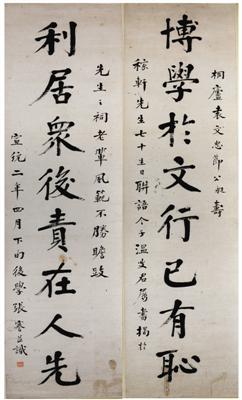 桐廬袁文忠節公祝壽
博學於文行己有恥
稼軒先生七十生日聯語令子溫叟君屬書揭於
先生之祠老輩風範不勝瞻跂
利居衆後責在人先
宣統二年四月下旬後學張謇并識